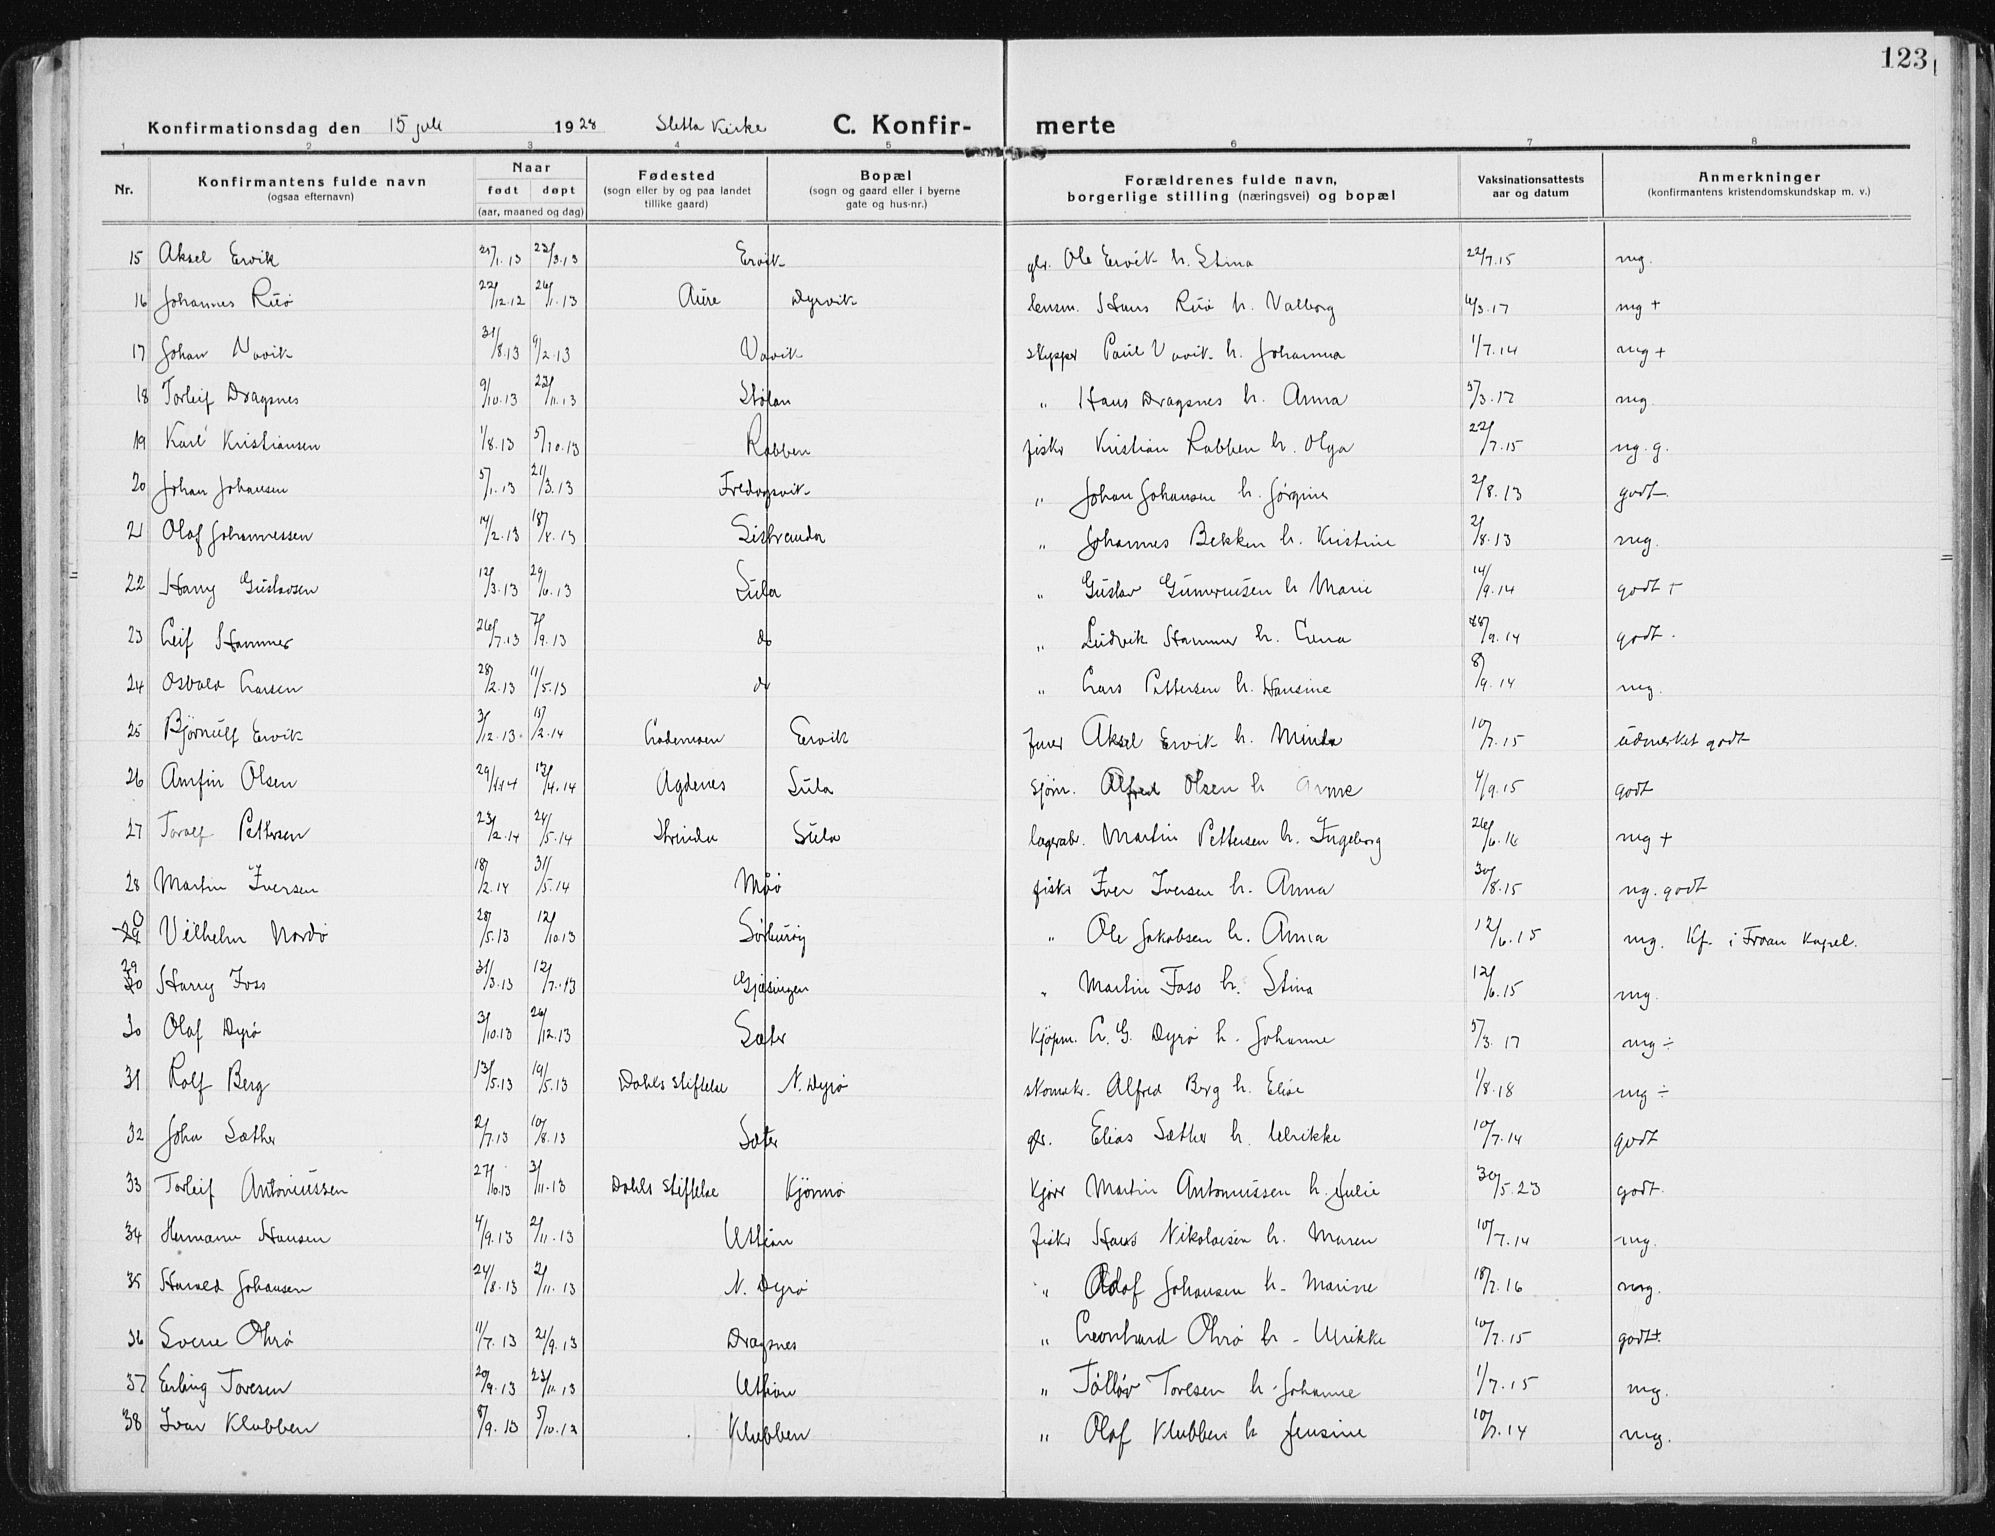 123
Konfirmationsdag den 15 juli 1928 Sletta Kirke C. Konfir- merte
1 2 3 4 5 6 7 8
Nr. Konfirmantens fulde navn (ogsaa efternavn) Naar født døpt (aar, maaned og dag) Fødested (sogn eller by og paa landet tillike gaard) Bopæl (sogn og gaard eller i byerne gate og hus-nr.) Forældrenes fulde navn, borgerlige stilling (næringsvei) og bopæl Vaksinationsattests aar og datum Anmerkninger (konfirmantens kristendomskundskap m. v.)
15 Aksel Ervik 21/1.13 22/3.13 Ervik Ole Ervik h. Stina 22/7.15 mg.
16 Johannes Risø 22/12.12 26/1.13 Aure Dyrvik lensm. Hans Risø h. Valborg 6/3.17 mg +
17 Johan Vavik 31/8.13 9/2.13 Vavik skypper Paul Vavik h. Johanna 1/7.14 mg +
18 Torleif Dragsnes 9/10.13 23/11.13 Stølan " Hans Dragsnes h. Anna 5/3.17 mg.
19 Karl Kristiansen 1/8.13 5/10.13 Rabben fisker Kristian Rabben h. Olga 22/7.15 ng. g.
20 Johan Johansen 5/1.13 21/3.13 Fredagsvik " Johan Johansen h. Jørgine 2/8.13 godt.
21 Olaf Johannessen 14/2.13 18/8.13 Sistranda " Johannes Bekken h. Kristine 2/8.13 mg.
22 Harry Gustavsen 12/3.13 29/6.13 Sula " Gustav Gunerиusen h Marie 14/9.14 godt +
23 Leif Hammer 26/7.13 7/9.13 do " Ludvik Hammer h. Lena 9.14 godt.
24 Osvald Larsen 28/2.13 11/5.13 do " Lars Pettersen h. Hansine 8/9.14 mg.
25 Bjørnulf Ervik 3/12.13 15/2.14 Lademoen Ervik furer Aksel Ervik h. Minda 10/7.15 udmerket godt
26 Arnfin Olsen 29/1.14 13/4.14 Agdenes Sula sjøm. Alfred Olsen h Anne 4/9.15 godt
27 Toralf Pettersen 23/2.14 24/5.14 Strinda Sula lagerab. Martin Pettersen h. Ingeborg 26/6.16 mg +
28 Martin Iversen 18/2.14 31/5.14 Måø fisker Iver Iversen h. Anna 30/8.15 ng. godt
29 0 Vilhelm Nordø 28/5.13 12/10.13 Sørburøy " Ole Jakobsen h. Anna 12/6.15 mg. Kf. i Froan Kapel.
30 29 Harry Foss 31/3.13 12/7.13 Gjæsingen " Martin Foss h. Stina 12/6.15 mg.
30 Olaf Dyrø 3/10.13 26/12.13 Sæter kjøpm. L. G. Dyrø h. Johanne 5/3.17 mg ÷
31 Rolf Berg 13/5.13 19/5.13 Dahls stiftelse N. Dyrø skomakr. Alfred Berg h. Elise 1/8.18 mg ÷
32 John Sæther 2/7.13 10/8.13 Sæter Elias Sæther h. Ulrikke 10/7.14 godt
33 Torleif Antoniussen 27/10.13 3/11.13 Dahls stiftelse Kjønnø Kjørr Martin Antoniussen h. Julie 30/5.23 godt.
34 Hermann Hansen 4/9.13 2/11.13 Uttian fisker Hans Nikolaisen h. Maren 10/7.14 mg.
35 Harald Johansen 24/8.13 2/11.13 N. Dyrø " Adolf Johansen h. Marine 18/7.16 mg.
36 Sverre Ohrø 11/7.13 21/9.13 Dragsnes " Leonhard Ohrø h. Ulrikke 10/7.15 godt+
37 Erling Toresen 20/9.13 23/11.13 Uttian " Toresen h. Johanne 1/7.15 mg.
38 Ivar Klubben 8/9.13 5/10.13 Klubben " Olaf Klubben h Jensine 10/7.14 mg.